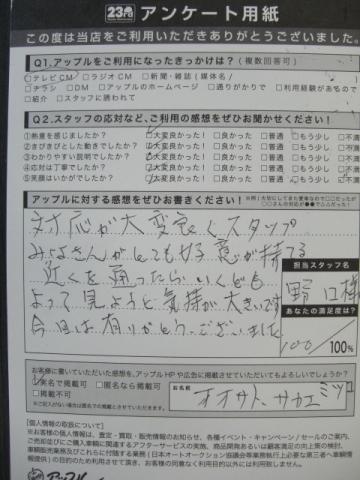 アンケート用紙
この度は当店をご利用いただきありがとうございました。
Q1.アップルをご利用になったきっかけは?(複数回答可)
□テレビCM □ラジオCM □新聞・雑誌(媒体名/
□チラシ □DM □アップルのホームページ □通りがかりで □利用経験があるので
□紹介 □スタッフに誘われて
Q2.スタッフの応対など、ご利用の感想をぜひお聞かせください!
①熱意を感じましたか? □大変良かった! □良かった □普通 □もう少し □不満
②きびきびとした動きでしたか? □大変良かった! □良かった □普通 □もう少し □不満
③わかりやすい説明でしたか? □大変良かった! □良かった □普通 □もう少し □不満
④応対は丁寧でしたか? □大変良かった! □良かった □普通 □もう少し □不満
⑤笑顔はいかがでしたか? □大変良かった! □良かった □普通 □もう少し □不満
アップルに対する感想をぜひお書きください!
対応が大変良くスタッフ
みなさんがとても好意が持てる
近くを通ったらいくども
よって見ようと気持が大きいです
今日は有りがとうございました
担当スタッフ名
野口様
あなたの満足度は?
100/100%
お客様に書いていただいた感想を、アップルHPや広告に掲載させていただいてもよろしいでしょうか?
□実名で掲載可 □匿名なら掲載可
□掲載不可
※ご記入がない場合は匿名での掲載とさせていただきます。
お名前
オオサト サカエミツ
【個人情報の取扱について】
※お客様の個人情報は、査定・買取・販売情報のお知らせ、各種イベント・キャンペーン/セールのご案内、
ご売却並びにご購入車輌に関連するアフターサービスの実施、商品開発あるいは顧客満足の向上策の検討、
車輌販売業務及びこれらに付随する業務(日本オートオークション協議会専業務執行上必要な第三者へ車輌情
報提供)の目的のため利用させて頂き、お客様の同意なく利用目的以外には利用致しません。
アップル